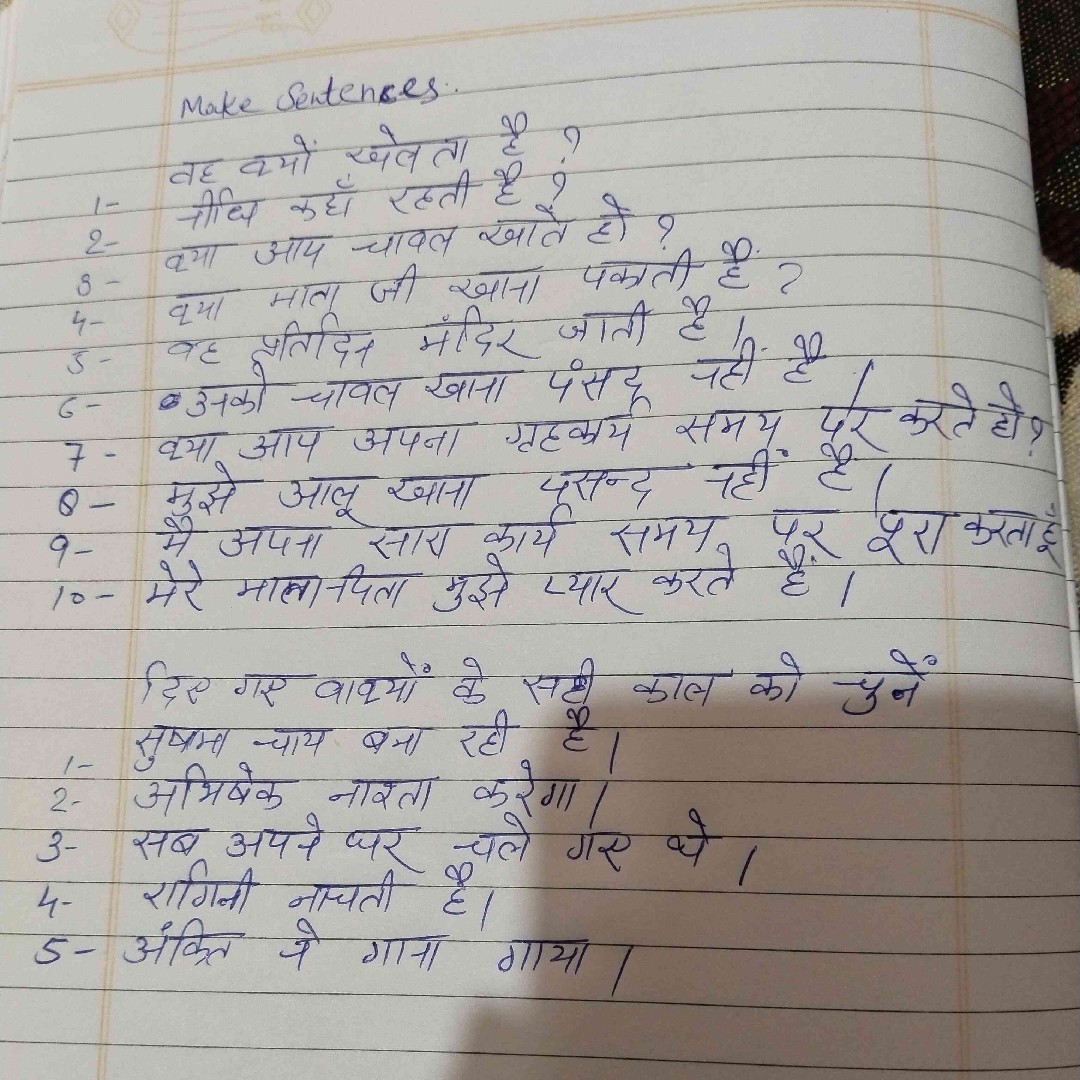 Make Sentences..
1- वह क्यों खेलता है ?
2- नीधि कहाँ रहती है ?
3- क्या आप चावल खाते हो ?
4- क्या माता जी खाना पकाती हैं ?
5- वह प्रतिदिन मंदिर जाती है।
6- उनको चावल खाना पंसद नही है।
7- क्या आप अपना गृहकार्य समय पर करते हो?
8- मुझे आलू खाना पसन्द नहीं है।
9- मै अपना सारा कार्य समय पर पूरा करता हूँ
10- मेरे माता-पिता मुझे प्यार करते हैं।
दिए गए वाक्यों के सही काल को चुनें
1- सुषमा चाय बना रही है।
2- अभिषेक नाश्ता करेगा।
3- सब अपने घर चले गए थे।
4- रागिनी नाचती है।
5- अंकित ने गाना गाया।